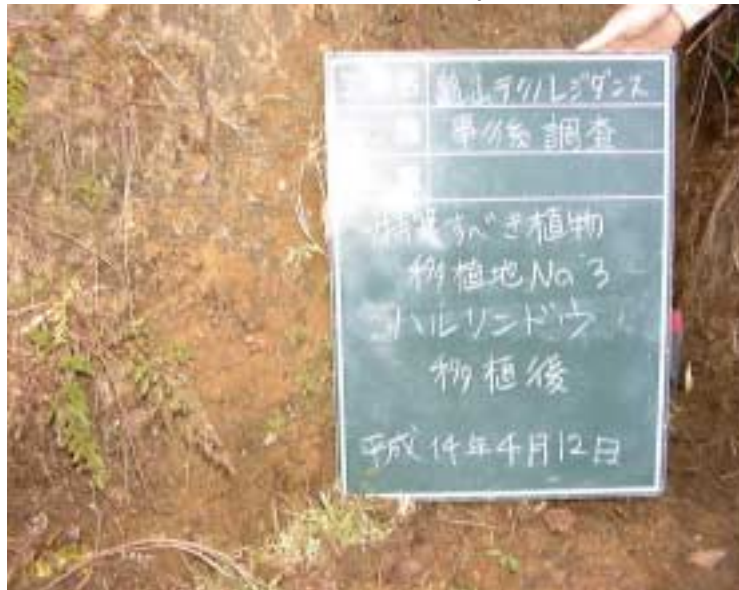 亀山テクノレジデンス
事後調査
特筆すべき植物
移植地No 3
ハルリンドウ
移植後
平成14年4月12日